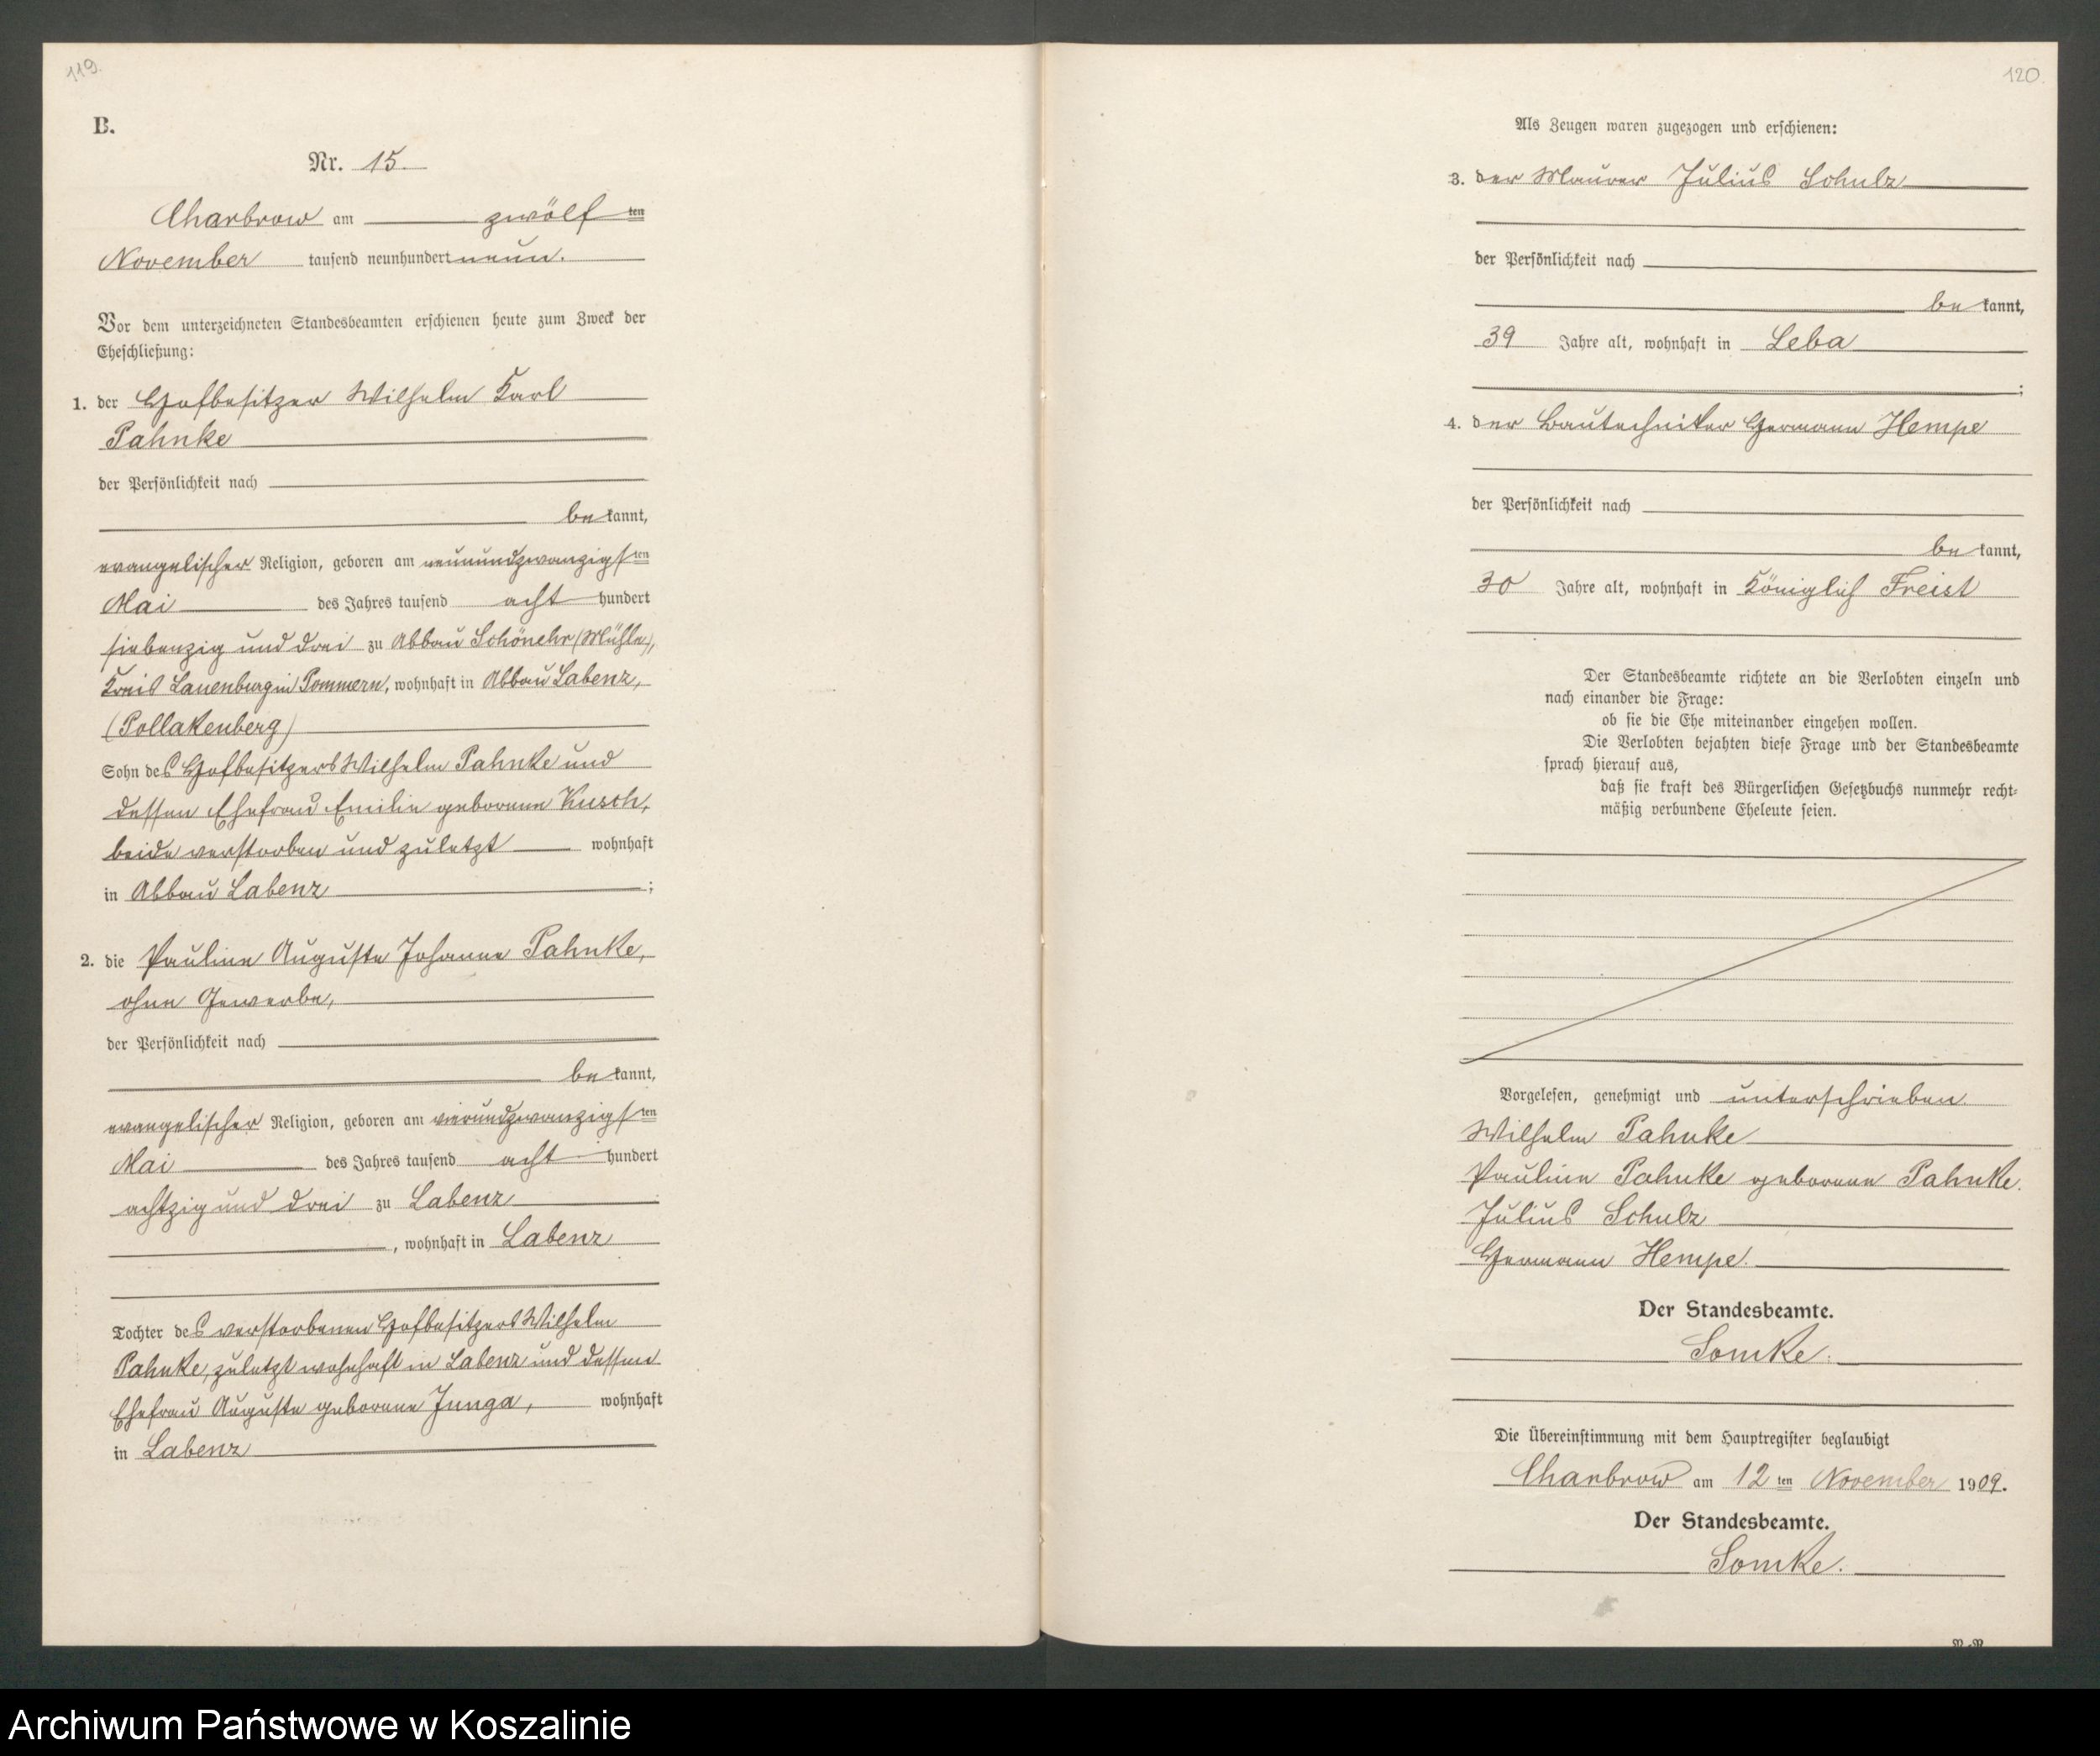 119.
B.
Nr. 15.
Charbrow am zwölften
November tausend neunhundert neun.
Vor dem unterzeichneten Standesbeamten erschienen heute zum Zweck der
Eheschließung:
1. der Hofbesitzer Wilhelm Karl
Pahnke
der Persönlichkeit nach
bekannt,
evangelischer Religion, geboren am neunundzwanzigsten
Mai des Jahres tausend acht hundert
siebenzig und drei zu Abbau Schönehr (Mühle),
Kreis Lauenburg in Pommern, wohnhaft in Abbau Labenz,
(Pollakenberg)
Sohn des Hofbesitzers Wilhelm Pahnke und
dessen Ehefrau Emilie geborene Kusch,
beide verstorben und zuletzt wohnhaft
in Abbau Labenz;
2. die Pauline Auguste Johanne Pahnke,
ohne Gewerbe,
der Persönlichkeit nach
bekannt,
evangelischer Religion, geboren am vierundzwanzigsten
Mai des Jahres tausend acht hundert
achtzig und drei zu Labenz
, wohnhaft in Labenz
Tochter des verstorbenen Hofbesitzers Wilhelm
Pahnke, zuletzt wohnhaft in Labenz und dessen
Ehefrau Auguste geborene Junga, wohnhaft
in Labenz
120.
Als Zeugen waren zugezogen und erschienen:
3. der Maurer Julius Schulz
der Persönlichkeit nach
bekannt,
39 Jahre alt, wohnhaft in Leba
;
4. der Bautechniker Hermann Hempe
der Persönlichkeit nach
bekannt,
30 Jahre alt, wohnhaft in Königlich Freist
Der Standesbeamte richtete an die Verlobten einzeln und
nach einander die Frage:
ob sie die Ehe miteinander eingehen wollen.
Die Verlobten bejahten diese Frage und der Standesbeamte
sprach hierauf aus,
daß sie kraft des Bürgerlichen Gesetzbuchs nunmehr recht-
mäßig verbundene Eheleute seien.
Vorgelesen, genehmigt und unterschrieben.
Wilhelm Pahnke
Pauline Pahnke geborene Pahnke.
Julius Schulz
Hermann Hempe.
Der Standesbeamte.
Somke.
Die Übereinstimmung mit dem Hauptregister beglaubigt
Charbrow am 12ten November 1909.
Der Standesbeamte.
Somke.
Archiwum Państwowe w Koszalinie